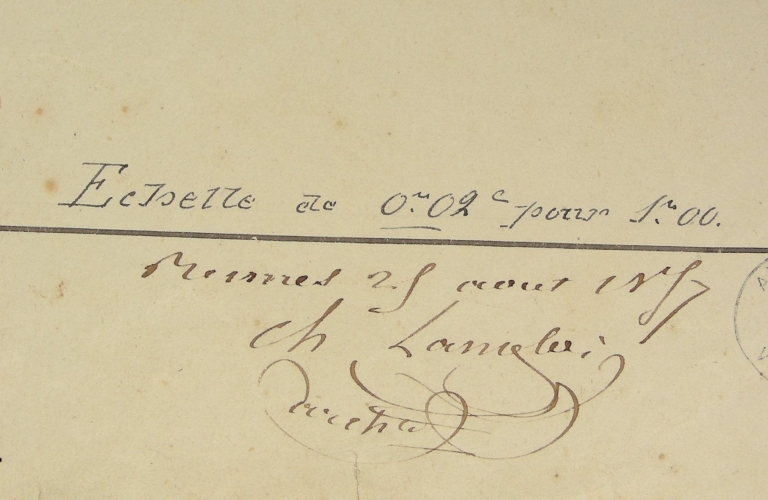 Echelle de 0m02c pour 1m00.
Rennes 25 aout 1857
Ch Langlois
archte